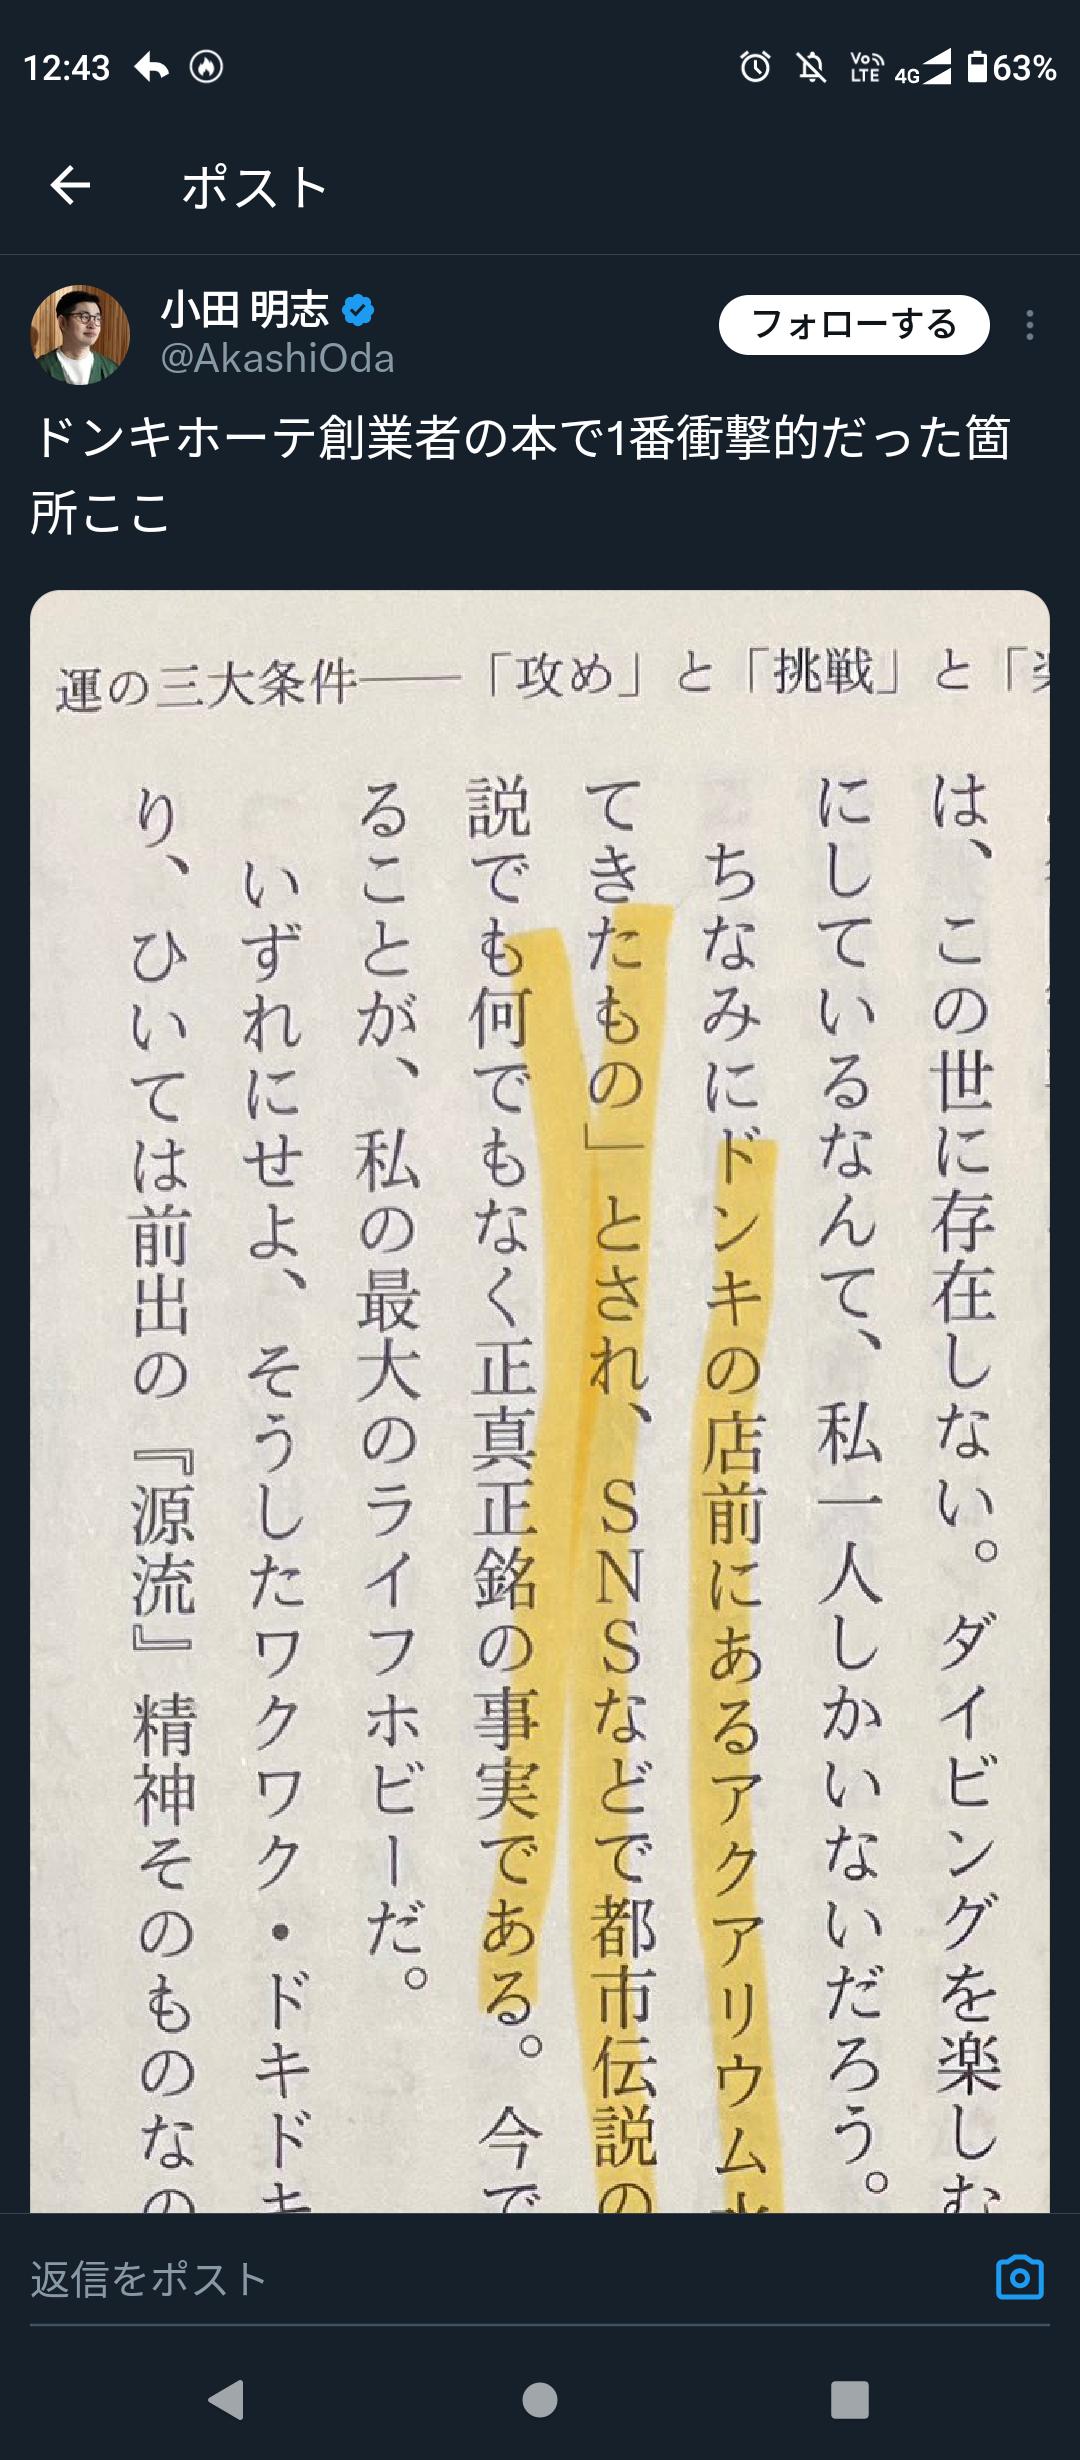 12:43
Vo LTE 4G 63%
ポスト
小田 明志
@AkashiOda
フォローする
ドンキホーテ創業者の本で1番衝撃的だった箇
所ここ
運の三大条件――「攻め」と「挑戦」と「
は、この世に存在しない。ダイビングを楽しむ
にしているなんて、私一人しかいないだろう。
ちなみにドンキの店前にあるアクアリウム水
てきたもの」とされ、SNSなどで都市伝説の
説でも何でもなく正真正銘の事実である。今で
ることが、私の最大のライフホビーだ。
いずれにせよ、そうしたワクワク・ドキドキ
り、ひいては前出の『源流』精神そのものなの
返信をポスト